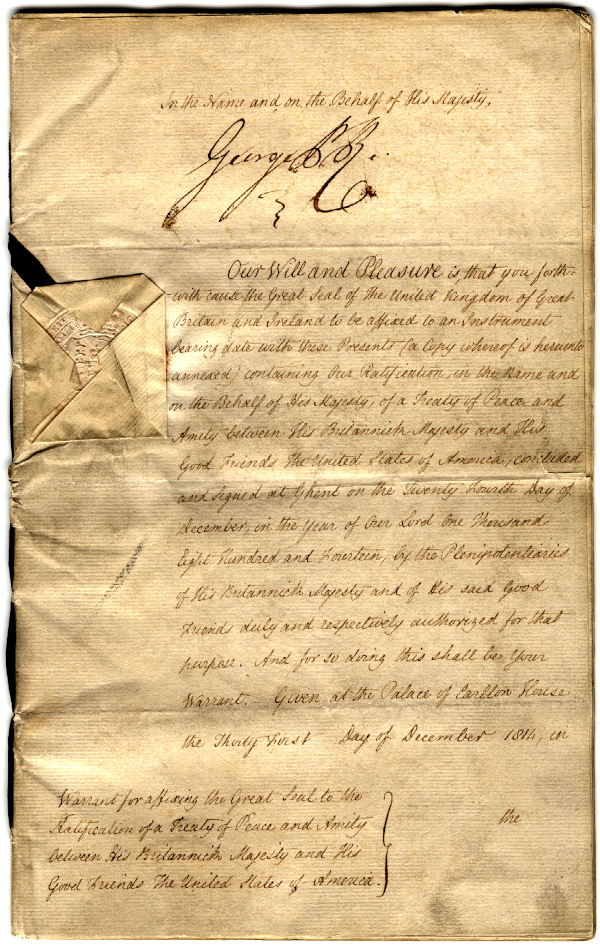 In the Name and on the Behalf of His Majesty.
George P. R.
Our Will and Pleasure is, that you forth=
=with cause the Great Seal of the United Kingdom of Great
Britain and Ireland to be affixed to an Instrument
bearing date with these Presents (a Copy whereof is hereunto
annexed) containing Our Ratification, in the Name and
on the Behalf of His Majesty, of a Treaty of Peace and
Amity between His Britannick Majesty and His
Good Friends The United States of America, concluded
and signed at Ghent on the Twenty Fourth Day of
December, in the Year of Our Lord One Thousand
Eight Hundred and Fourteen, by the Plenipotentiaries
of His Britannick Majesty and of His said Good
Friends duly and respectively authorized for that
purpose. And for so doing this shall be Your
Warrant. – Given at the Palace of Carlton House
the Thirty First Day of December 1814, in
the
Warrant for affixing the Great Seal to the
Ratification of a Treaty of Peace and Amity
between His Britannick Majesty and His
Good Friends The United States of America. –